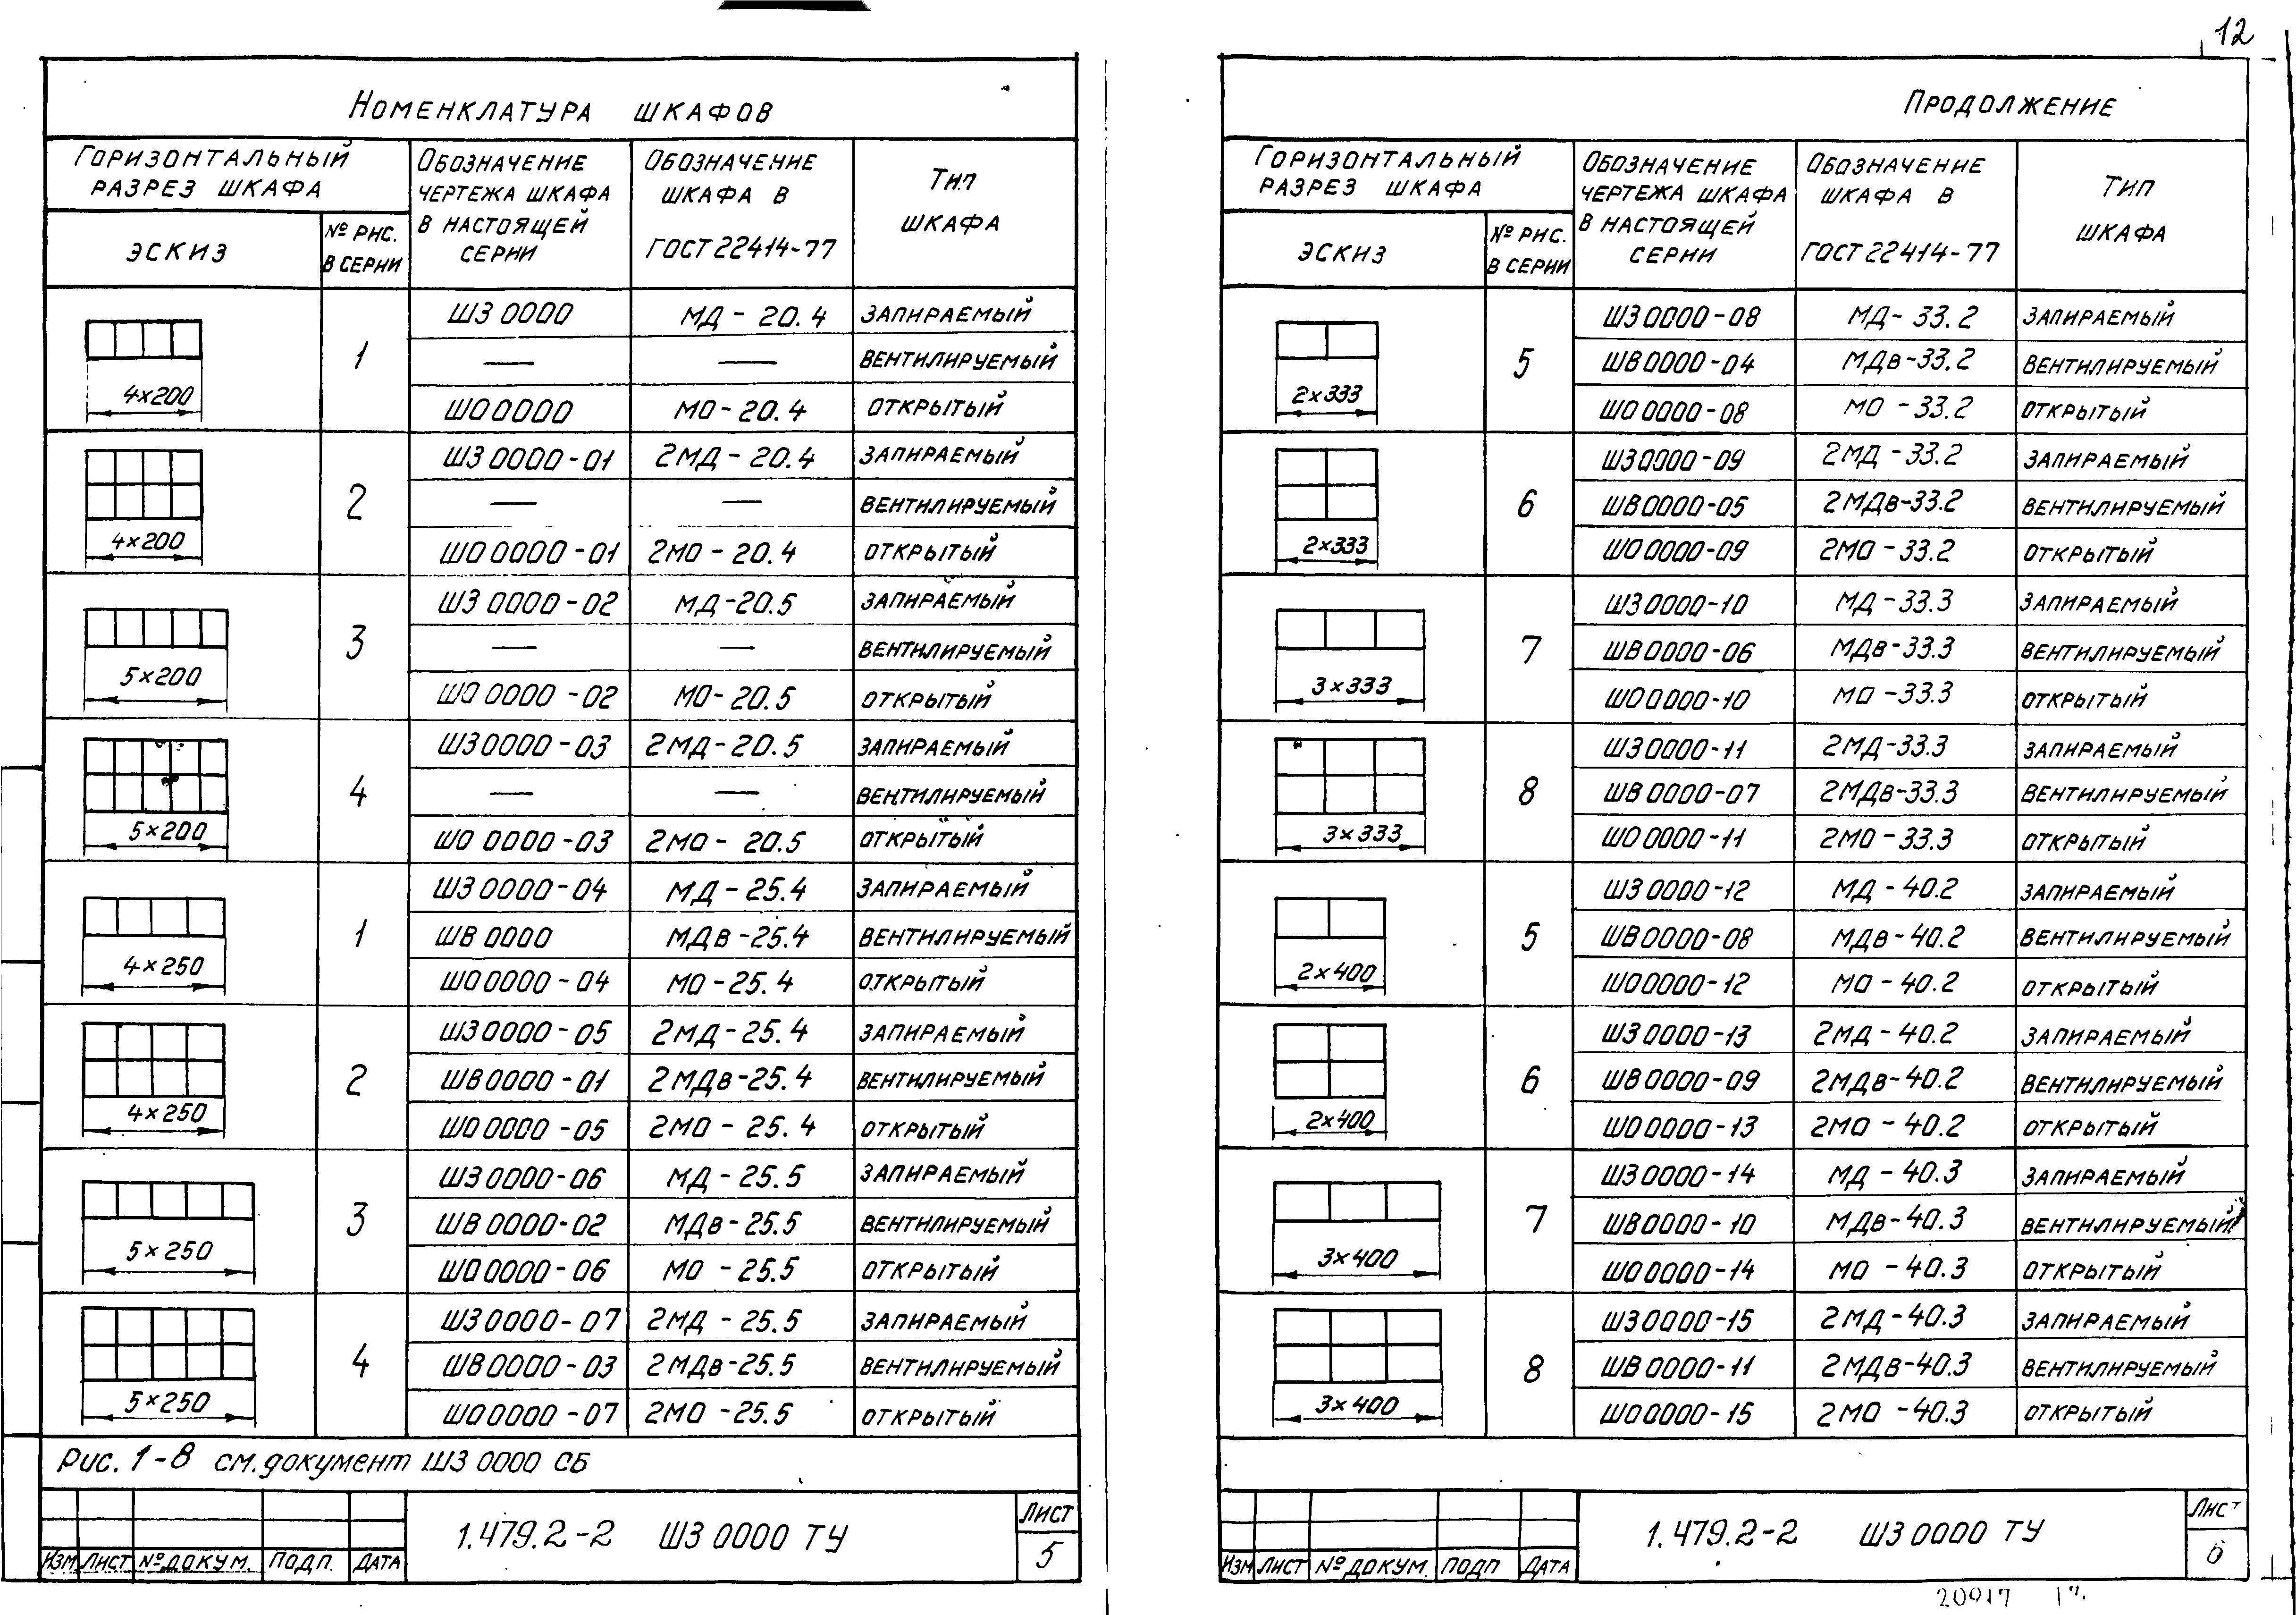 12
Номенклатура шкафов
Горизонтальный
разрез шкафа
Эскиз
№ рис.
в серии
Обозначение
чертежа шкафа
в настоящей
серии
Обозначение
шкафа в
ГОСТ 22414-77
Тип
шкафа
4×200
1
ШЗ 0000 МД - 20.4 запираемый
— — вентилируемый
ШО 0000 МО - 20.4 открытый
4×200
2
ШЗ 0000-01 2МД - 20.4 запираемый
— — вентилируемый
ШО 0000-01 2МО - 20.4 открытый
5×200
3
ШЗ 0000-02 МД-20.5 запираемый
— — вентилируемый
ШО 0000-02 МО-20.5 открытый
5×200
4
ШЗ 0000-03 2МД-20.5 запираемый
— — вентилируемый
ШО 0000-03 2МО - 20.5 открытый
4×250
1
ШЗ 0000-04 МД - 25.4 запираемый
ШВ 0000 МДв-25.4 вентилируемый
ШО 0000-04 МО-25.4 открытый
4×250
2
ШЗ 0000-05 2МД-25.4 запираемый
ШВ 0000-01 2МДв-25.4 вентилируемый
ШО 0000-05 2МО - 25.4 открытый
5×250
3
ШЗ 0000-06 МД - 25.5 запираемый
ШВ 0000-02 МДв-25.5 вентилируемый
ШО 0000-06 МО - 25.5 открытый
5×250
4
ШЗ 0000-07 2МД - 25.5 запираемый
ШВ 0000-03 2МДв-25.5 вентилируемый
ШО 0000-07 2МО -25.5 открытый
Рис. 1-8 см. документ ШЗ 0000 СБ
Изм Лист № докум. Подп. Дата
1.479.2-2 ШЗ 0000 ТУ
Лист
5
Продолжение
Горизонтальный
разрез шкафа
Эскиз
№ рис.
в серии
Обозначение
чертежа шкафа
в настоящей
серии
Обозначение
шкафа в
ГОСТ 22414-77
Тип
шкафа
2×333
5
ШЗ 0000-08 МД- 33.2 запираемый
ШВ 0000-04 МДв-33.2 вентилируемый
ШО 0000-08 МО - 33.2 открытый
2×333
6
ШЗ 0000-09 2МД -33.2 запираемый
ШВ 0000-05 2МДв-33.2 вентилируемый
ШО 0000-09 2МО -33.2 открытый
3×333
7
ШЗ 0000-10 МД -33.3 запираемый
ШВ 0000-06 МДв-33.3 вентилируемый
ШО 0000-10 МО -33.3 открытый
3×333
8
ШЗ 0000-11 2МД-33.3 запираемый
ШВ 0000-07 2МДв-33.3 вентилируемый
ШО 0000-11 2МО -33.3 открытый
2×400
5
ШЗ 0000-12 МД - 40.2 запираемый
ШВ 0000-08 МДв-40.2 вентилируемый
ШО 0000-12 МО - 40.2 открытый
2×400
6
ШЗ 0000-13 2МД - 40.2 запираемый
ШВ 0000-09 2МДв-40.2 вентилируемый
ШО 0000-13 2МО - 40.2 открытый
3×400
7
ШЗ 0000-14 МД - 40.3 запираемый
ШВ 0000-10 МДв-40.3 вентилируемый
ШО 0000-14 МО - 40.3 открытый
3×400
8
ШЗ 0000-15 2МД-40.3 запираемый
ШВ 0000-11 2МДв-40.3 вентилируемый
ШО 0000-15 2МО -40.3 открытый
Изм Лист № докум. Подп Дата
1.479.2-2 ШЗ 0000 ТУ
Лист
6
20917